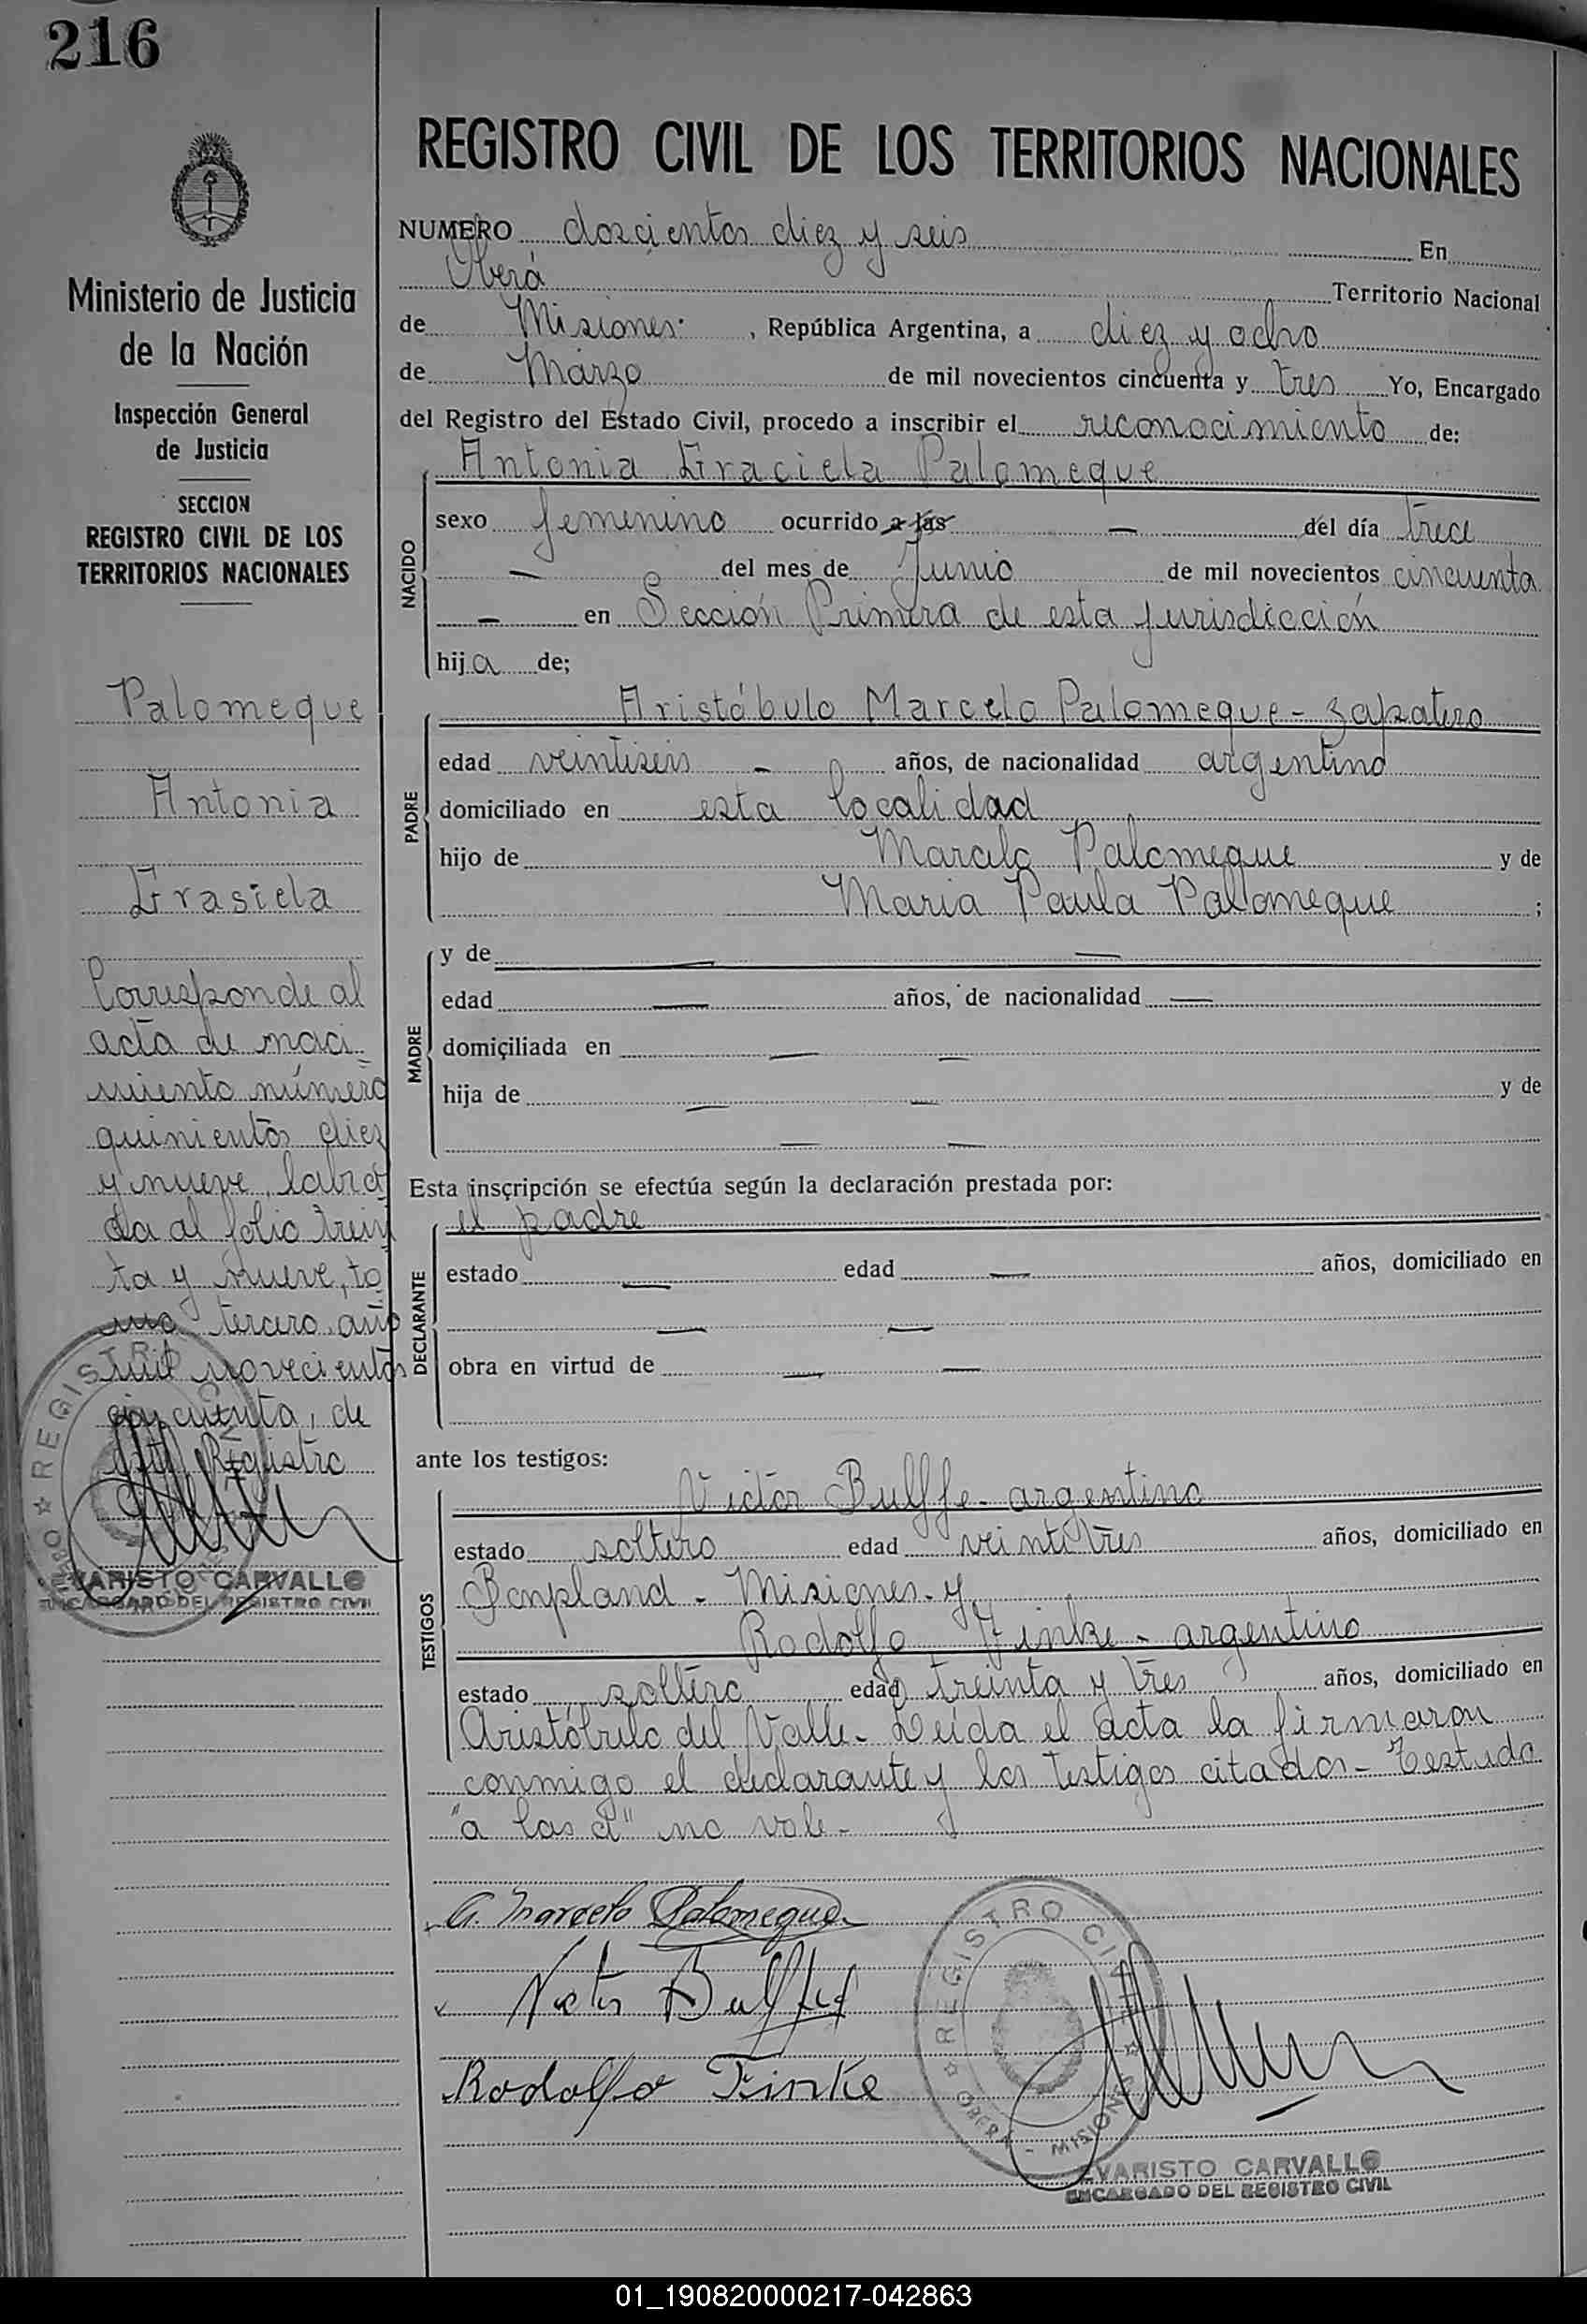 216
REGISTRO CIVIL DE LOS TERRITORIOS NACIONALES
Ministerio de Justicia
de la Nación
Inspección General
de Justicia
SECCION
REGISTRO CIVIL DE LOS
TERRITORIOS NACIONALES
Palomeque
Antonia
Grasiela
Corresponde al
acta de naci-
miento número
quinientos diez
y nueve, labra
da al folio trein
ta y nueve, to
mo tercero, año
mil novecientos
cincuenta, de
este Registro
REGISTRO CIVIL
EVARISTO CARVALLO
ENCARGADO DEL REGISTRO CIVIL
NUMERO doscientos diez y seis En
Oberá Territorio Nacional
de Misiones , República Argentina, a diez y ocho
de Marzo de mil novecientos cincuenta y tres Yo, Encargado
del Registro del Estado Civil, procedo a inscribir el reconocimiento de:
Antonia Graciela Palomeque
NACIDO
sexo femenino ocurrido a las — del día trece
— del mes de Junio de mil novecientos cincuenta
— en Sección Primera de esta jurisdicción
hija de;
PADRE
Aristóbulo Marcelo Palomeque - zapatero
edad veintiseis - años, de nacionalidad argentino
domiciliado en esta localidad
hijo de Marcelo Palomeque y de
Maria Paula Palomeque ;
MADRE
y de — —
edad — años, de nacionalidad —
domiciliada en — —
hija de — — y de
— —
Esta inscripción se efectúa según la declaración prestada por:
el padre
DECLARANTE
estado — edad — años, domiciliado en
— —
obra en virtud de — —
ante los testigos:
TESTIGOS
Victor Bulffe - argentino
estado soltero edad veintitrés años, domiciliado en
Bonpland - Misiones - y
Rodolfo Finke - argentino
estado soltero edad treinta y tres años, domiciliado en
Aristóbulo del Valle - Leída el acta la firmaron
conmigo el declarante y los testigos citados - Testado
"a las a" no vale -
A. Marcelo Palomeque
Victor Bulffe
Rodolfo Finke
REGISTRO CIVIL
OBERA - MISIONES
EVARISTO CARVALLO
ENCARGADO DEL REGISTRO CIVIL
01_190820000217-042863